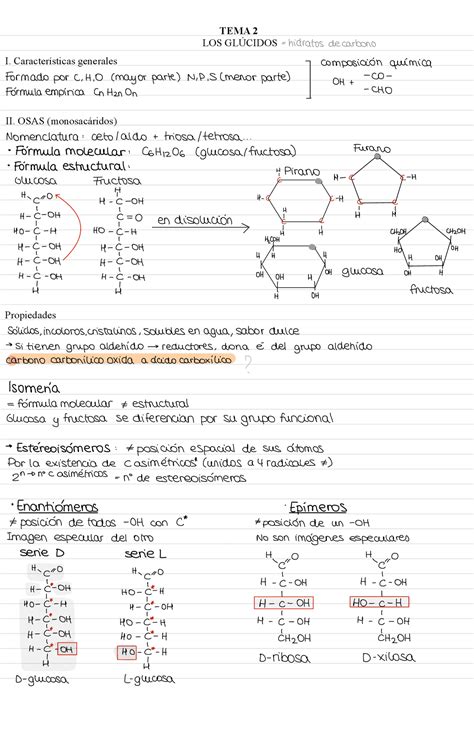 TEMA 2
LOS GLÚCIDOS - hidratos de carbono
I. Características generales
Formado por C,H,O (mayor parte) N,P,S (menor parte)
Fórmula empírica CnH2nOn
composición química
OH + -CO-
-CHO
II. OSAS (monosacáridos)
Nomenclatura: ceto/aldo + triosa/tetrosa...
· Fórmula molecular: C6H12O6 (glucosa/fructosa)
· Fórmula estructural:
Glucosa Fructosa
en disolución
Pirano
Furano
glucosa
fructosa
Propiedades
Sólidos, incoloros, cristalinos, solubles en agua, sabor dulce
→ Si tienen grupo aldehído → reductores, dona é del grupo aldehído
carbono carbonílico oxida a ácido carboxílico ?
Isomería
= fórmula molecular ≠ estructural
Glucosa y fructosa se diferencian por su grupo funcional
→ Estereoisómeros: ≠ posición espacial de sus átomos
Por la existencia de C asimétricos* (unidos a 4 radicales ≠)
2^n → nº C asimétricos = nº de estereoisómeros
· Enantiómeros
≠ posición de todos -OH con C*
Imagen especular del otro
serie D serie L
D-glucosa L-glucosa
· Epímeros
≠ posición de un -OH
No son imágenes especulares
D-ribosa D-xilosa